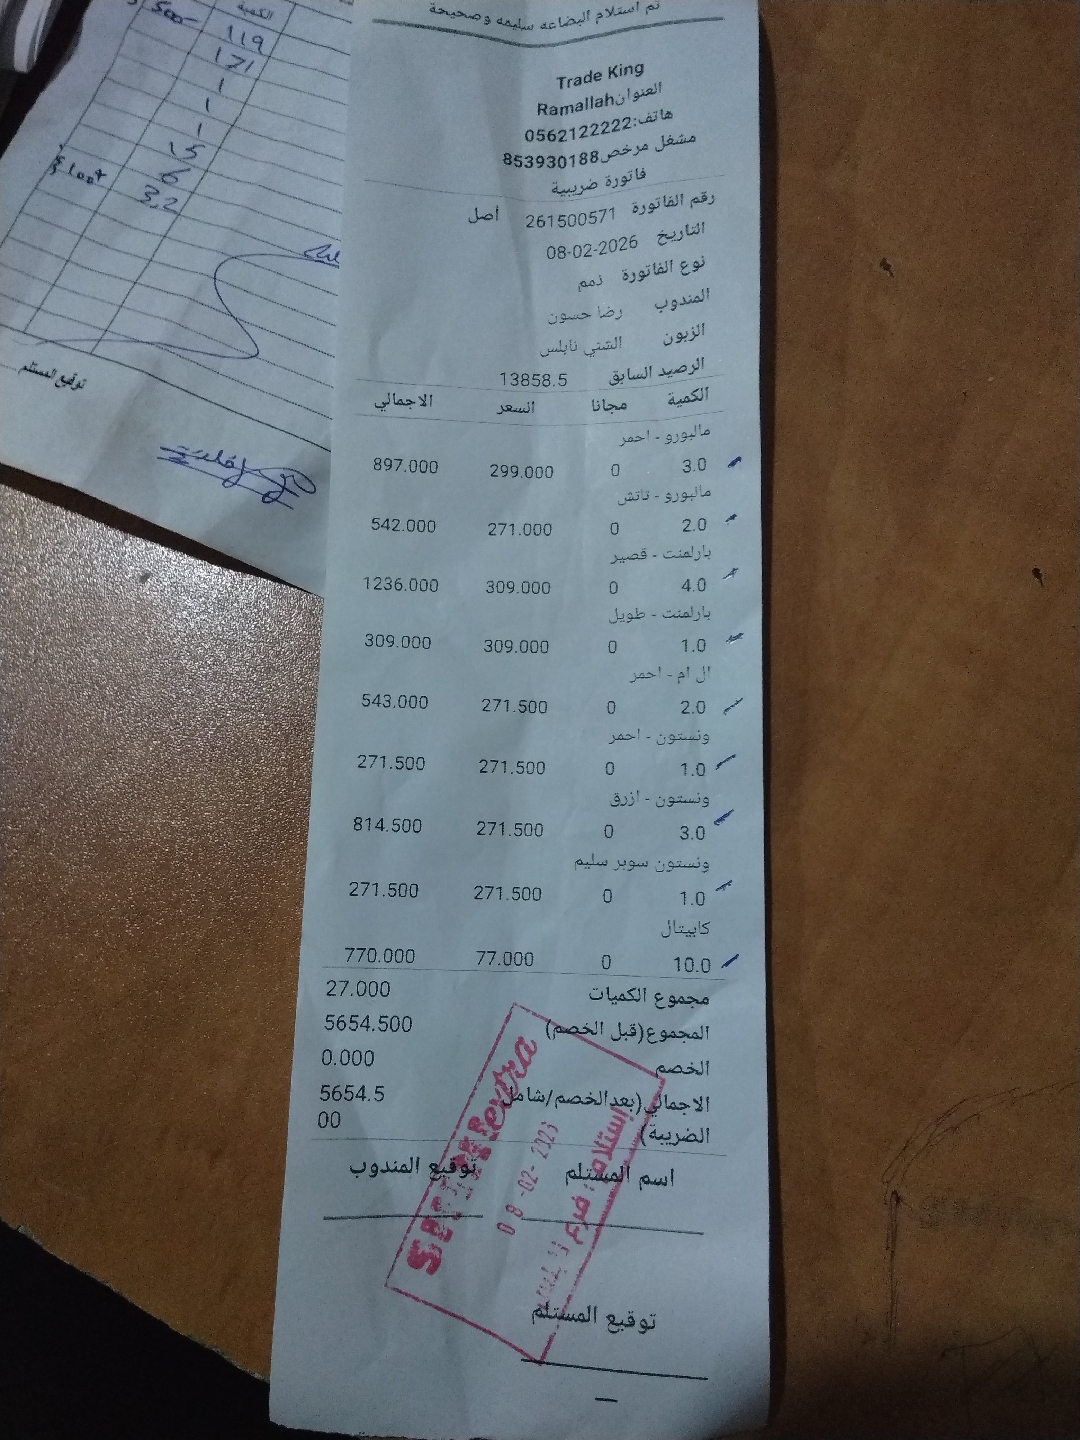 تم استلام البضاعه سليمه وصحيحة
Trade King
العنوانRamallah
هاتف:0562122222
مشغل مرخص853930188
فاتورة ضريبية
رقم الفاتورة 261500571 أصل
التاريخ 08-02-2026
نوع الفاتورة ذمم
المندوب رضا حسون
الزبون الشني نابلس
الرصيد السابق 13858.5
الكمية مجانا السعر الاجمالي
مالبورو - احمر
3.0 0 299.000 897.000
مالبورو - تاتش
2.0 0 271.000 542.000
بارلمنت - قصير
4.0 0 309.000 1236.000
بارلمنت - طويل
1.0 0 309.000 309.000
ال ام - احمر
2.0 0 271.500 543.000
ونستون - احمر
1.0 0 271.500 271.500
ونستون - ازرق
3.0 0 271.500 814.500
ونستون سوبر سليم
1.0 0 271.500 271.500
كابيتال
10.0 0 77.000 770.000
مجموع الكميات 27.000
المجموع(قبل الخصم) 5654.500
الخصم 0.000
الاجمالي(بعدالخصم/شامل 5654.5
الضريبة) 00
اسم المستلم توقيع المندوب
توقيع المستلم
extra
08-02-2023
إستلام فرع
الكمية
500
119
171
1
1
1
15
6
3.2
توقيع المستلم